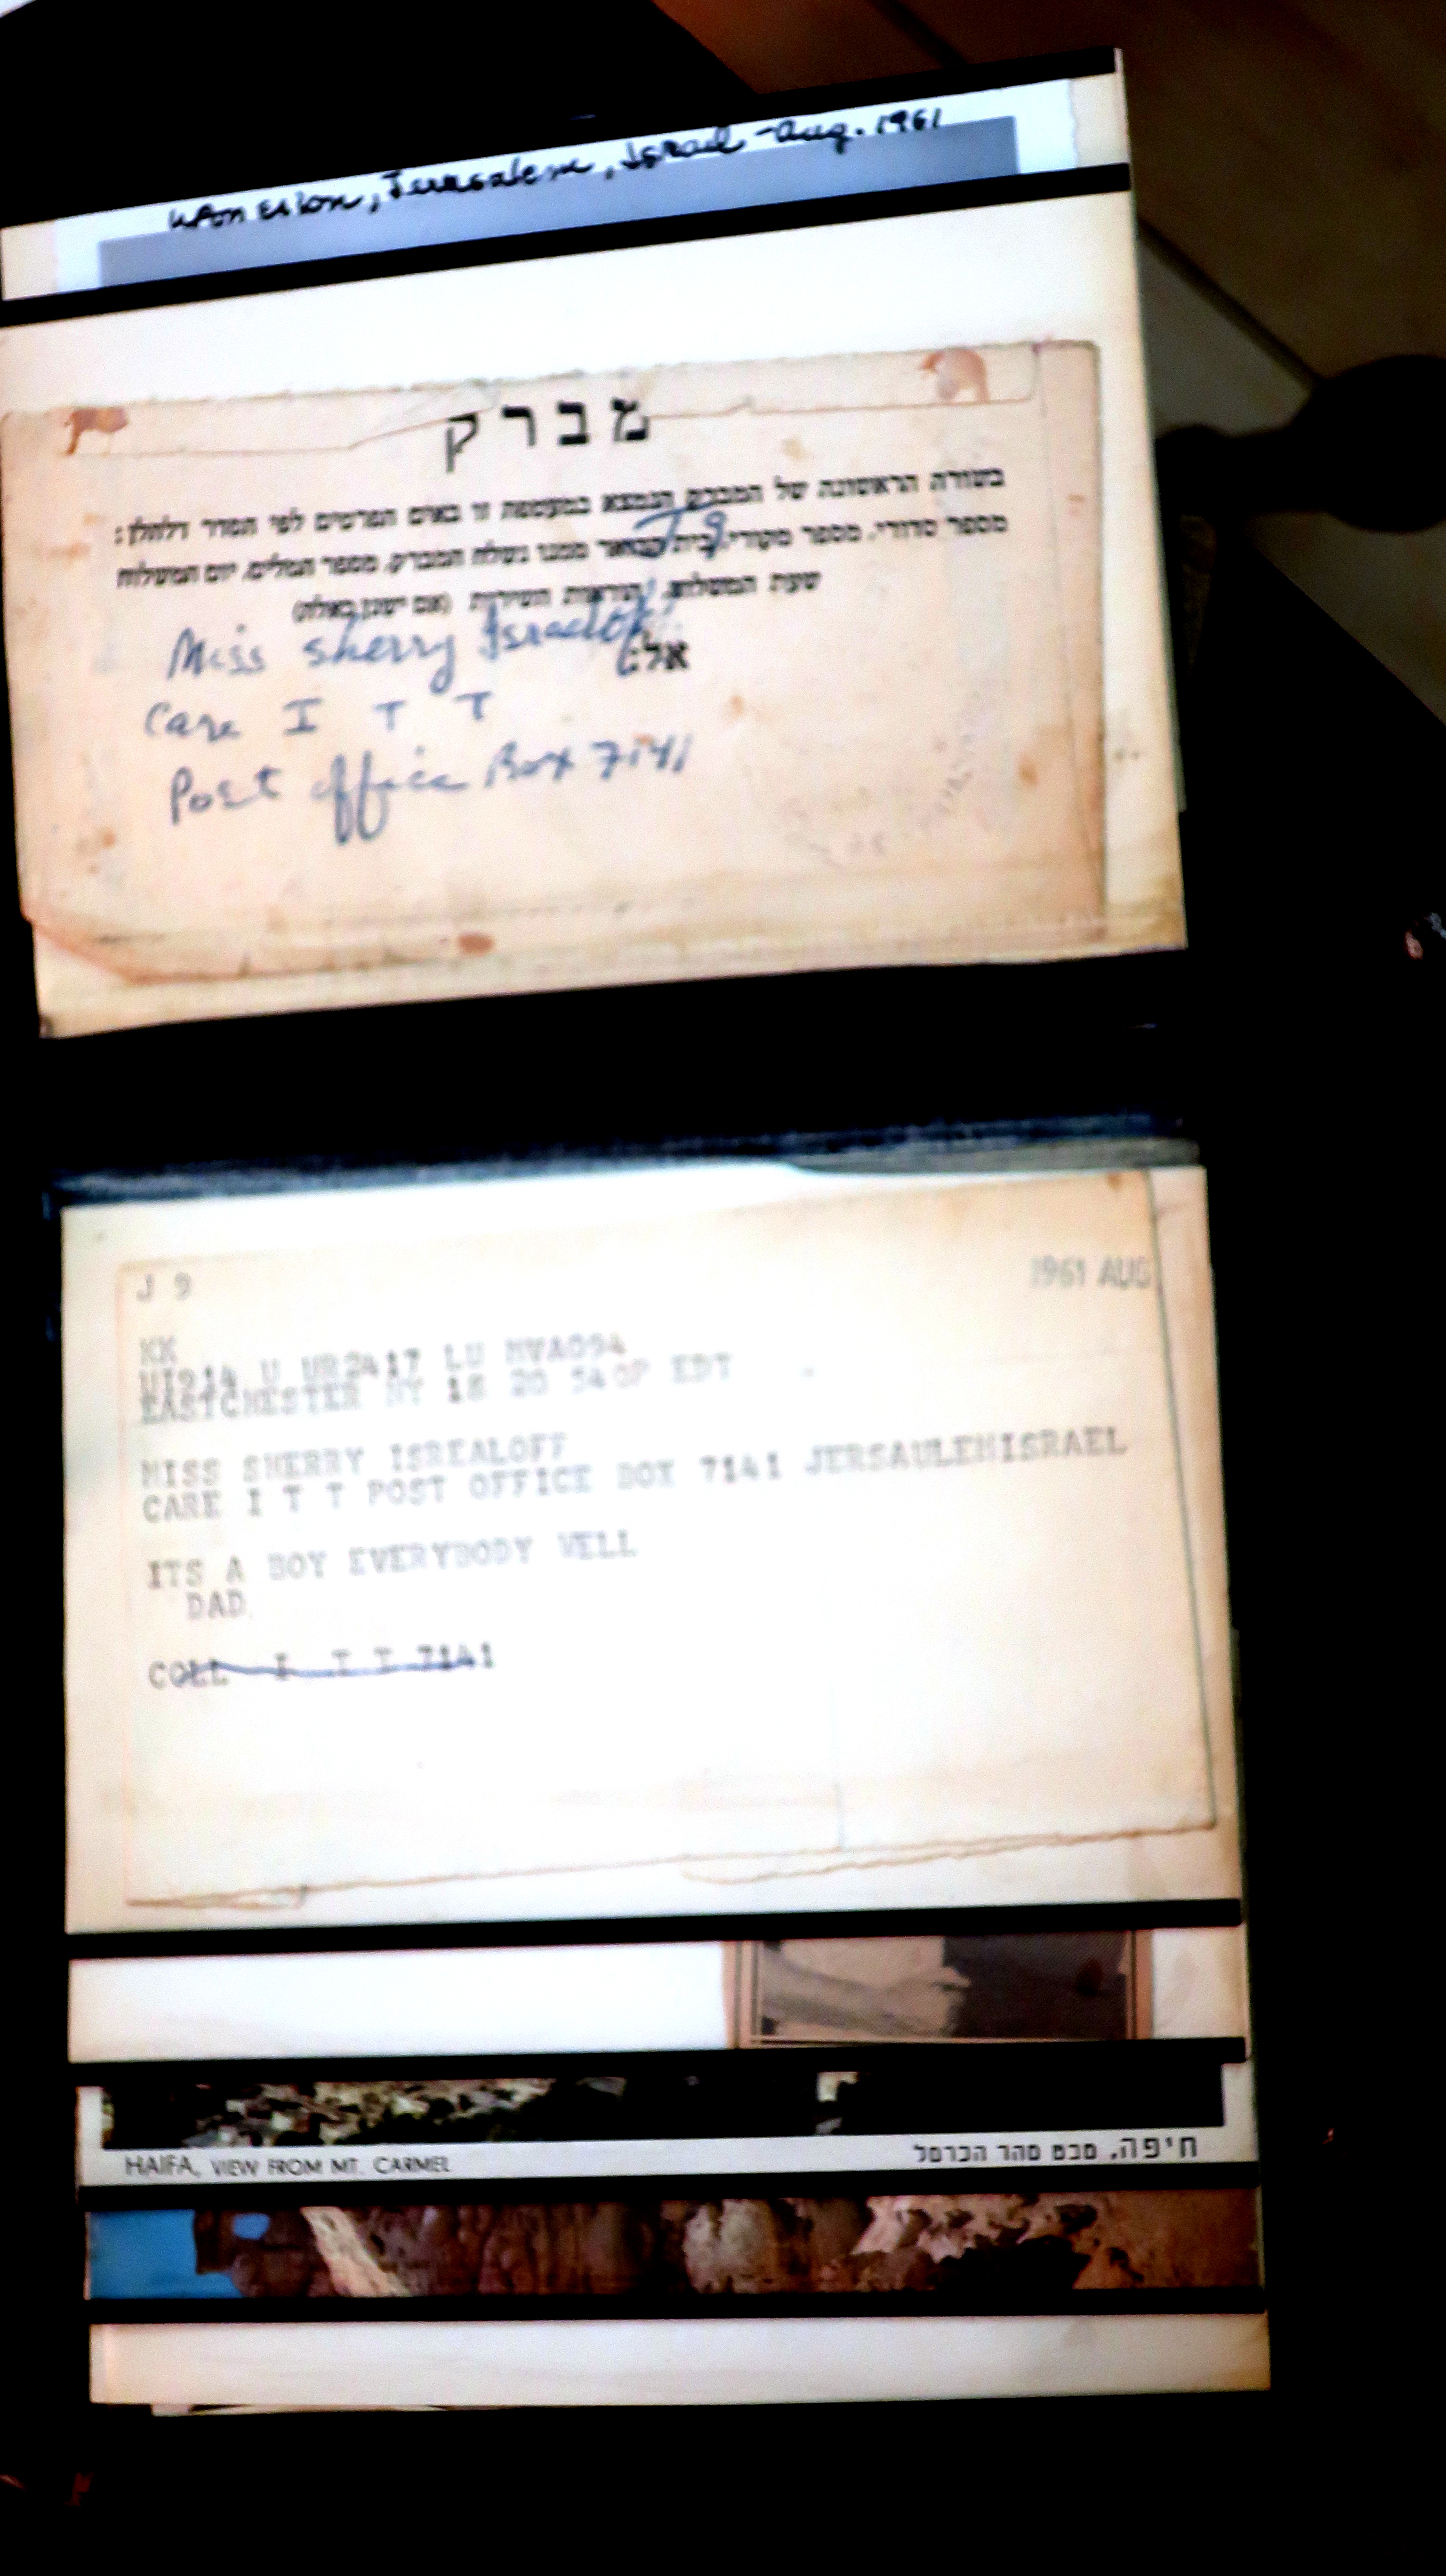 Mon Sion, Jerusalem, Israel - Aug. 1961
מברק
בשורה הראשונה של המברק הנמצא במעטפה זו באים הפרטים לפי הסדר דלהלן:
מספר סדורי, מספר מקורי, בית הדואר ממנו נשלח המברק, מספר המלים, יום המשלוח
שעת המשלוח, הוראות השירות (אם ישנן כאלה)
J9
אל:
Miss Sherry Israeloff
Care I T T
Post office Box 7141
J 9
1961 AUG
KK
UI914 U UR2417 LU MVA094
EASTCHESTER NY 18 20 540P EDT
MISS SHERRY ISREALOFF
CARE I T T POST OFFICE BOX 7141 JERSAULEMISRAEL
ITS A BOY EVERYBODY WELL
DAD
COLL I T T 7141
HAIFA, VIEW FROM MT. CARMEL
חיפה, מבט מהר הכרמל